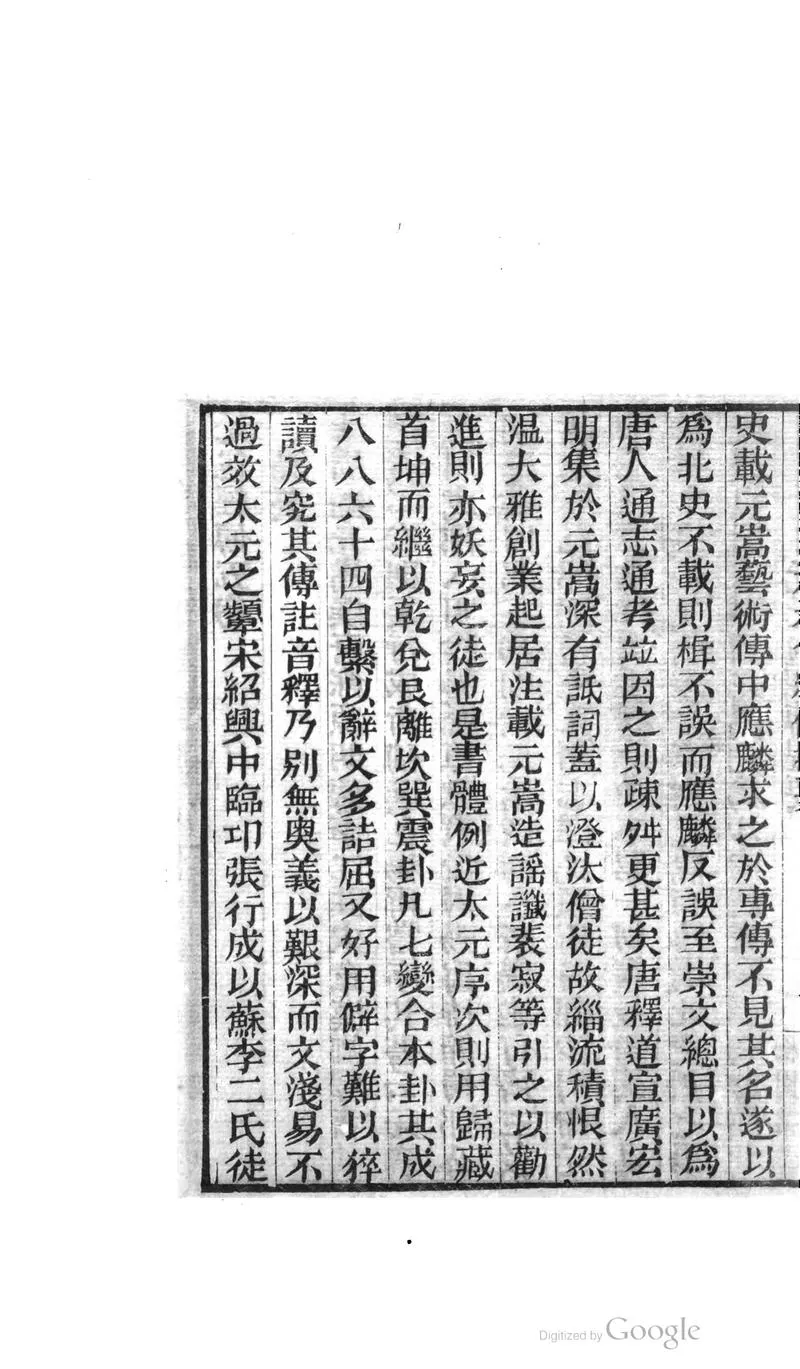 史載元嵩藝術傳中應麟求之於專傳不見其名遂以
爲北史不載則楫不誤而應麟反誤至崇文總目以爲
唐人通志通考竝因之則疎舛更甚矣唐釋道宣廣宏
明集於元嵩深有詆詞蓋以澄汰僧徒故緇流積恨然
温大雅創業起居注載元嵩造謡讖裴寂等引之以勸
進則亦妖妄之徒也是書體例近太元序次則用歸藏
首坤而繼以乾兌艮離坎巽震卦凡七變合本卦其成
八八六十四自繫以辭文多詰屈又好用僻字難以猝
讀及究其傳註音釋乃別無奥義以艱深而文淺易不
過效太元之顰宋紹興中臨卭張行成以蘇李二氏徒
Digitized by Google